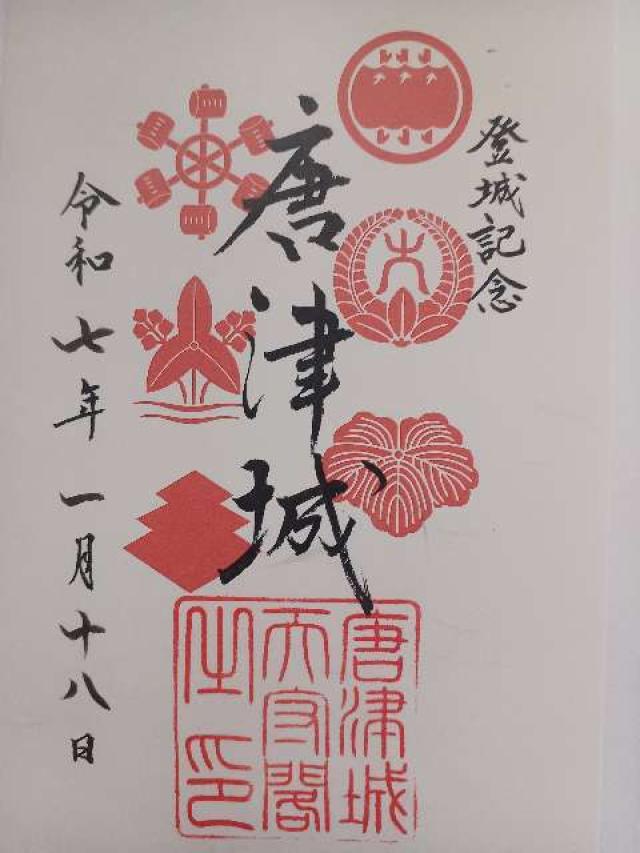 登城記念
唐津城
令和七年一月十八日
唐津城
天守閣
之印